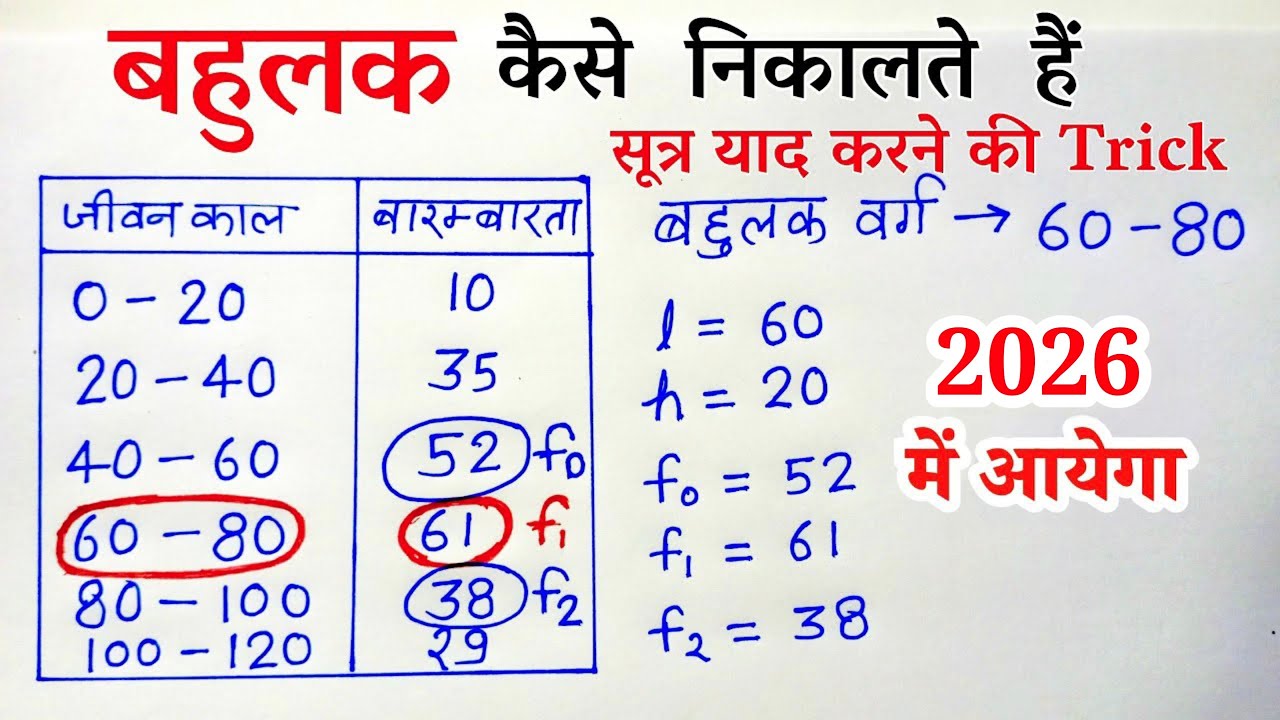 बहुलक कैसे निकालते हैं
सूत्र याद करने की Trick
जीवन काल बारम्बारता
0 – 20 10
20 – 40 35
40 – 60 52 f₀
60 – 80 61 f₁
80 – 100 38 f₂
100 – 120 29
बहुलक वर्ग → 60 – 80
l = 60
h = 20
f₀ = 52
f₁ = 61
f₂ = 38
2026
में आयेगा